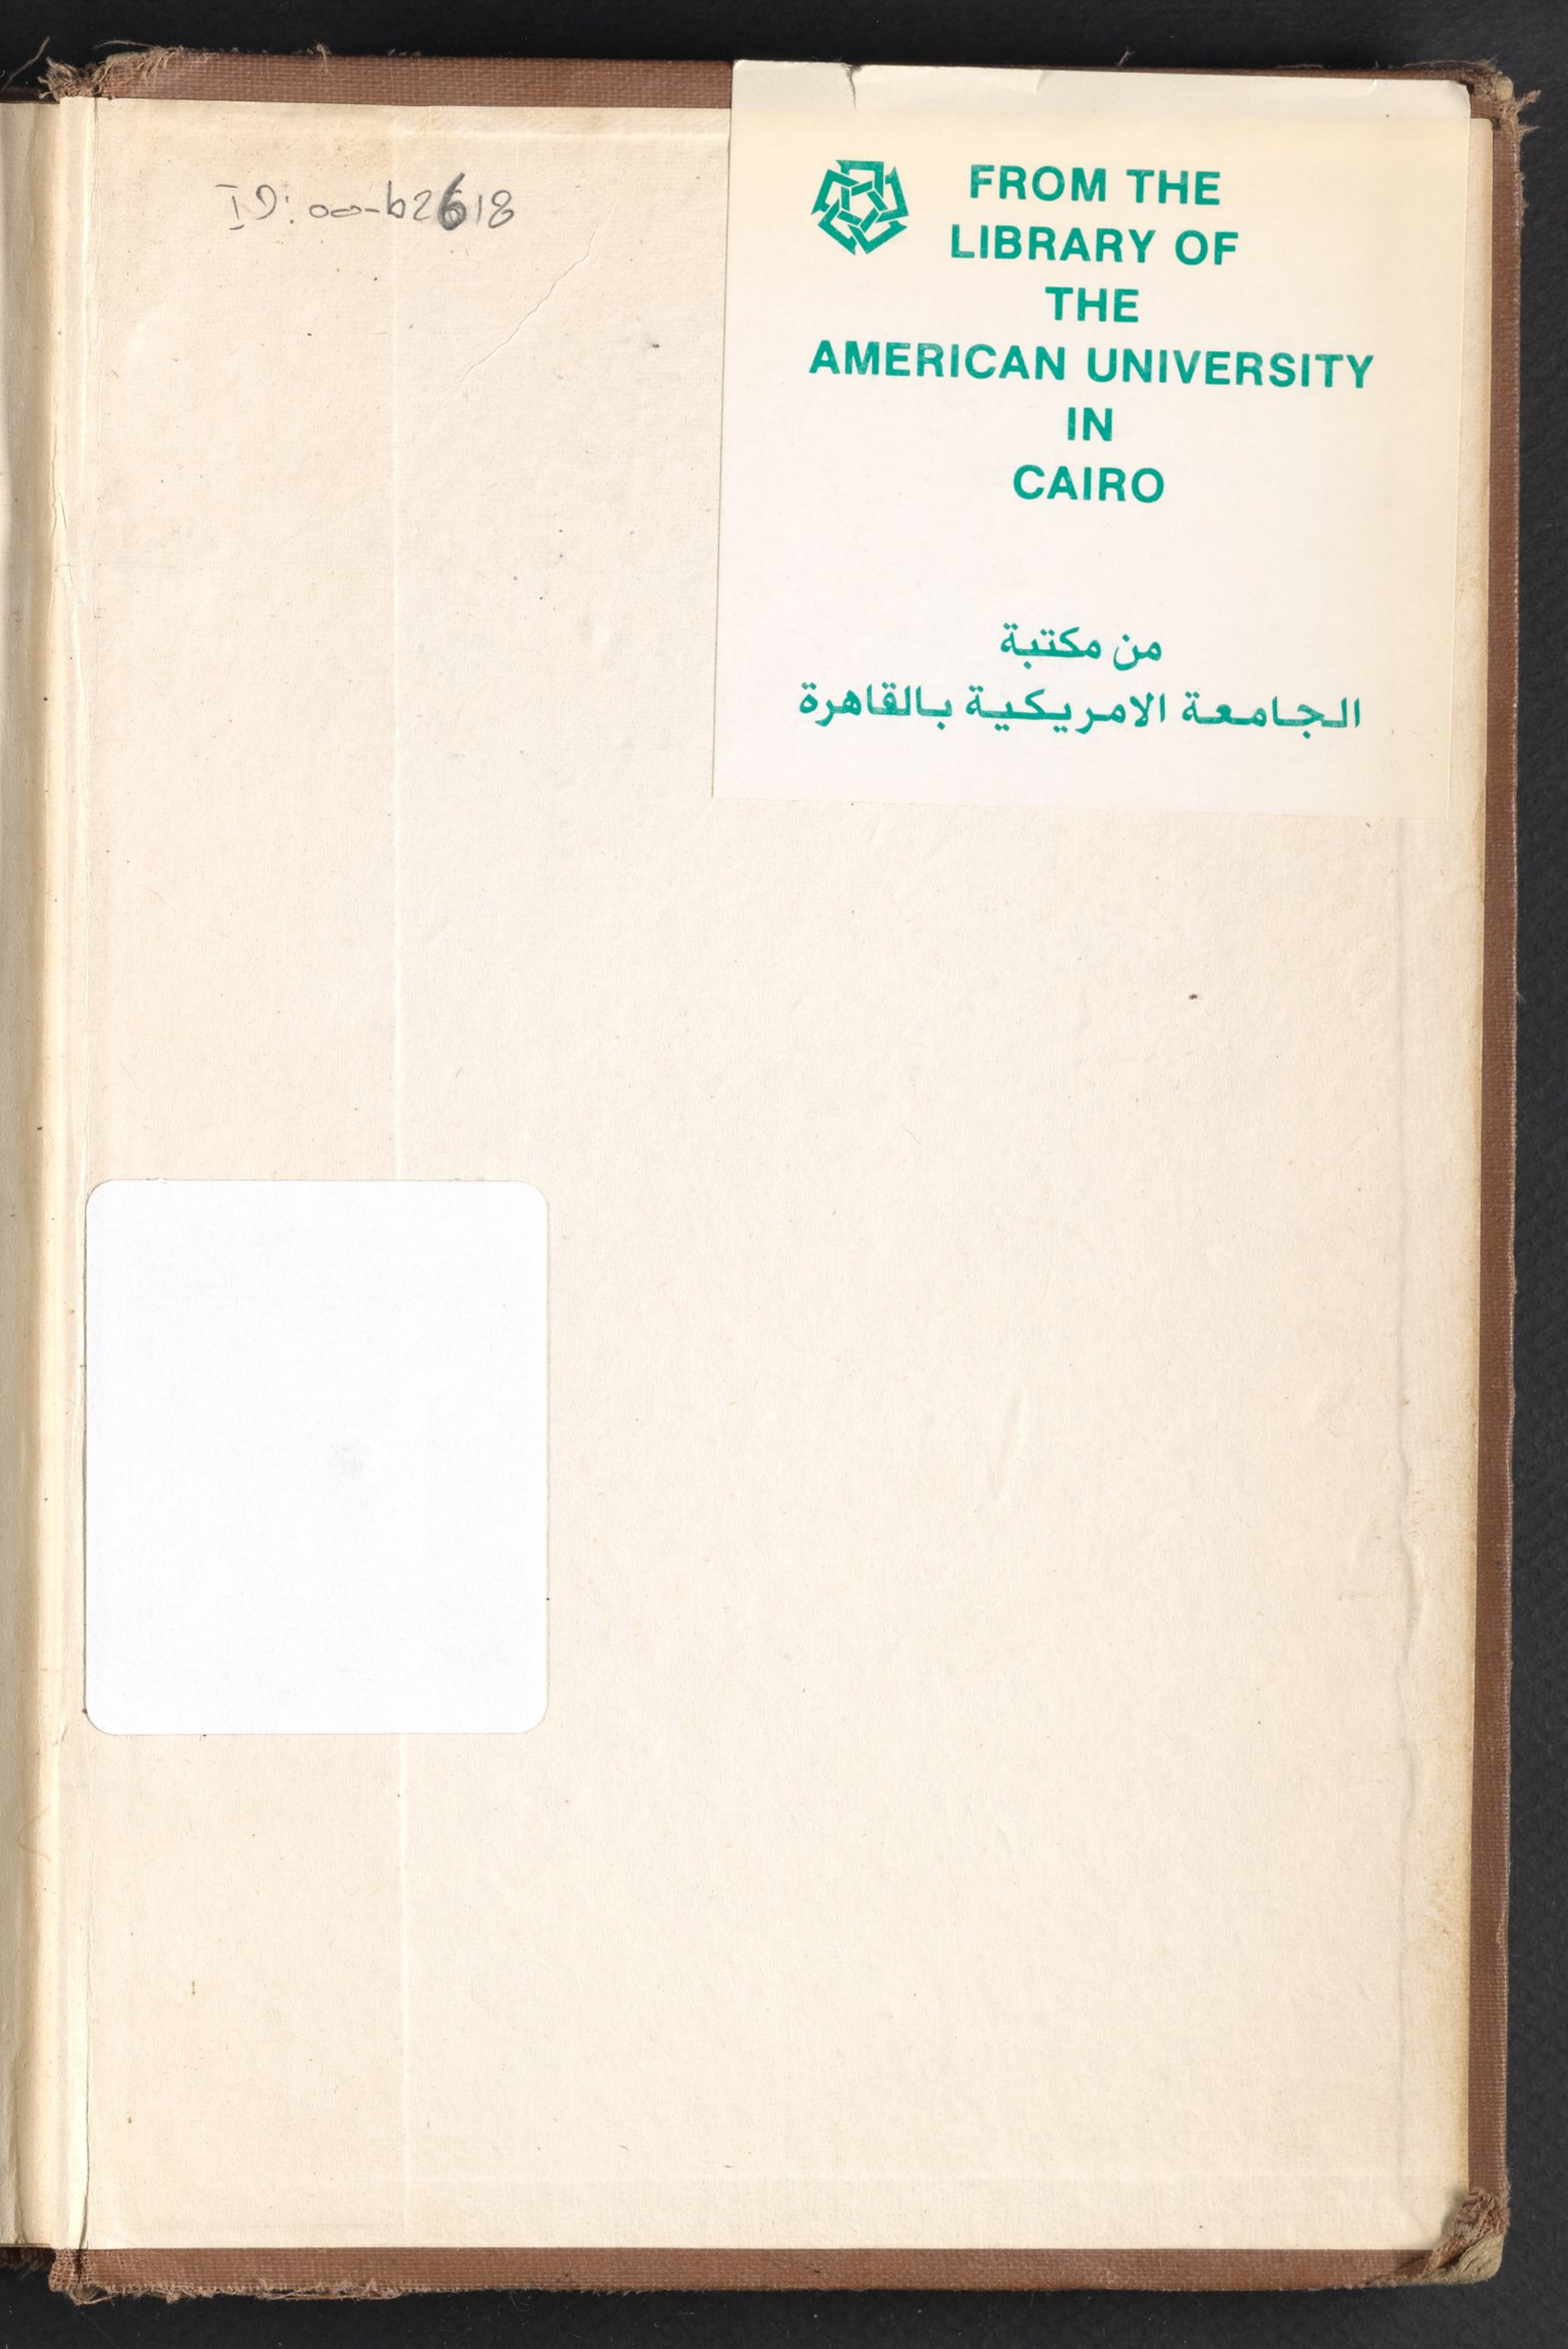 ID: 00-b2618
FROM THE
LIBRARY OF
THE
AMERICAN UNIVERSITY
IN
CAIRO
من مكتبة
الجامعة الامريكية بالقاهرة